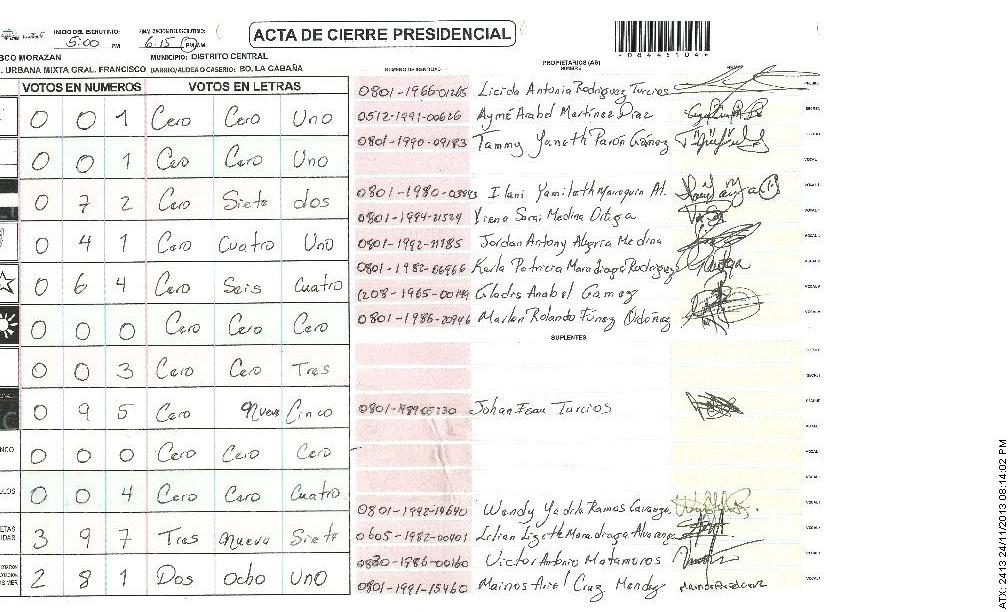 INICIO DEL ESCRUTINIO: 5:00 PM
FINALIZACION DEL ESCRUTINIO: 6:15 PM AM
ACTA DE CIERRE PRESIDENCIAL
SCO MORAZAN MUNICIPIO: DISTRITO CENTRAL
. URBANA MIXTA GRAL. FRANCISCO BARRIO/ALDEA O CASERIO: BO. LA CABAÑA
NUMERO DE IDENTIDAD PROPIETARIOS (AS) NOMBRE
VOTOS EN NUMEROS VOTOS EN LETRAS
0 0 1 Cero Cero Uno
0 0 1 Cero Cero Uno
0 7 2 Cero Siete dos
0 4 1 Cero Cuatro Uno
0 6 4 Cero Seis Cuatro
0 0 0 Cero Cero Cero
0 0 3 Cero Cero Tres
0 9 5 Cero Nueve Cinco
NCO 0 0 0 Cero Cero Cero
LOS 0 0 4 Cero Cero Cuatro
ETAS
IDAS 3 9 7 Tres nueve Siete
2 8 1 Dos Ocho Uno
0801-1966-01265 Licida Antonia Rodriguez Turcios
0512-1991-00626 Aymé Arabel Martinez Diaz
0801-1990-09183 Tammy Yaneth Pavón Gámez
0801-1980-03843 Ilani Yamileth Marroquin Al.
0801-1994-21524 Yiena Sarai Medina Ortega
0801-1992-11185 Jordan Antony Alverra Medina
0801-1982-06966 Karla Patricia Maradiaga Rodriguez
1208-1965-00149 Gladis Anabel Gamez
0801-1986-20946 Marlon Rolando Fúnez Ordoñez
SUPLENTES
Johan Turcios
0801-1992-19640 Wendy Yadira Ramos Caranza
0605-1982-00401 Lilian Lizeth Maradiaga Alvarenga
Victor Antonio Matamoros
0801-1991-15460 Mainor Ariel Cruz Mendy
ATX: 2413 24/11/2013 08:14:02 PM